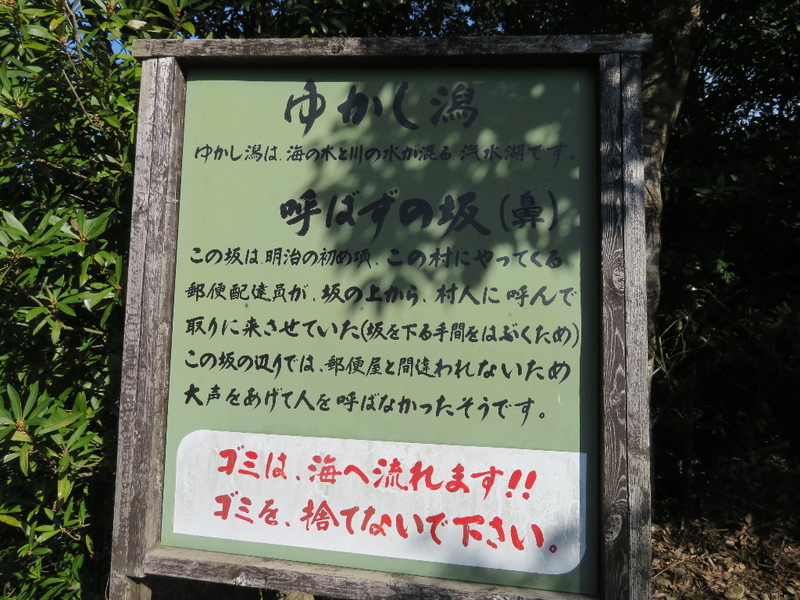 ゆかし潟
ゆかし潟は、海の水と川の水が混る、汽水湖です。
呼ばずの坂(鼻)
この坂は、明治の初め頃、この村にやってくる
郵便配達員が、坂の上から、村人に呼んで
取りに来させていた(坂を下る手間をはぶくため)
この坂の辺りでは、郵便屋と間違われないため
大声をあげて人を呼ばなかったそうです。
ゴミは、海へ流れます!!
ゴミを、捨てないで下さい。